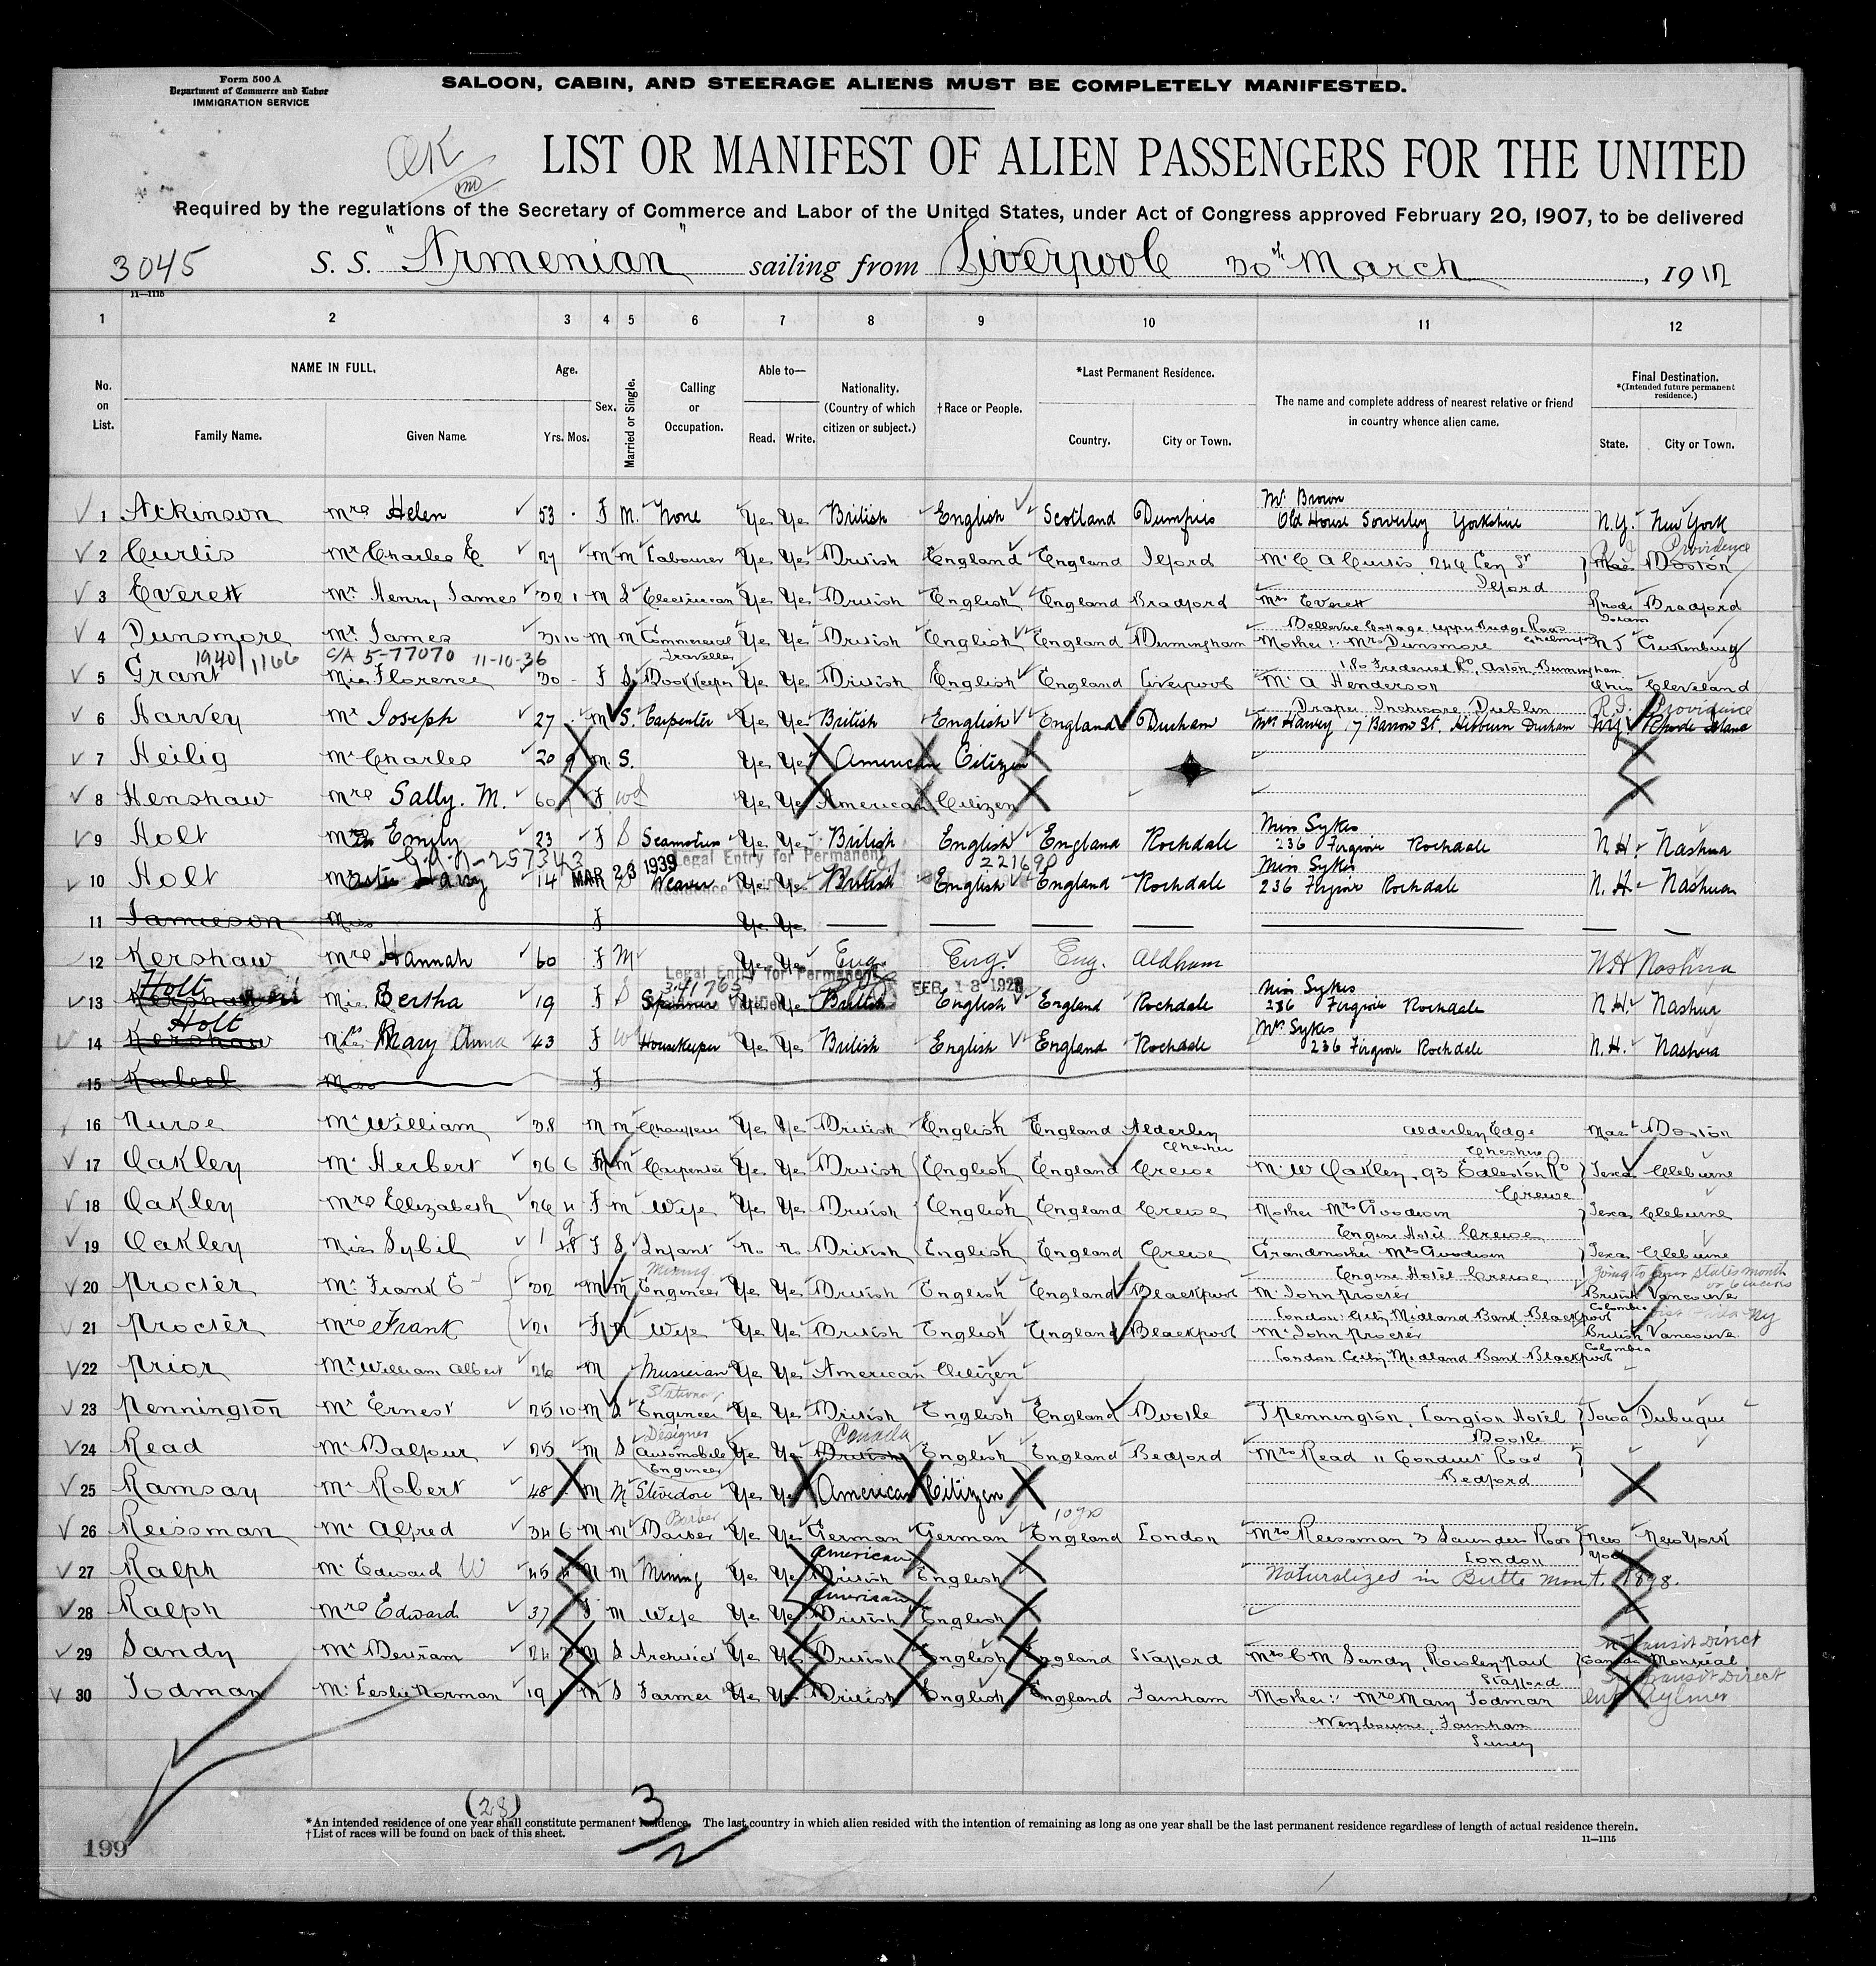 Form 500 A
Department of Commerce and Labor
IMMIGRATION SERVICE
SALOON, CABIN, AND STEERAGE ALIENS MUST BE COMPLETELY MANIFESTED.
OK
LIST OR MANIFEST OF ALIEN PASSENGERS FOR THE UNITED
Required by the regulations of the Secretary of Commerce and Labor of the United States, under Act of Congress approved February 20, 1907, to be delivered
3045 S. S. "Armenian" sailing from Liverpool 30th March, 1912
11—1115
1 2 3 4 5 6 7 8 9 10 11 12
No. on List. NAME IN FULL. Family Name. Given Name. Age. Yrs. Mos. Sex. Married or Single. Calling or Occupation. Able to— Read. Write. Nationality. (Country of which citizen or subject.) †Race or People. *Last Permanent Residence. Country. City or Town. The name and complete address of nearest relative or friend in country whence alien came. Final Destination. *(Intended future permanent residence.) State. City or Town.
Mr. Brown
1 Atkinson Mrs Helen 53 F M. None Yes Yes British English Scotland Dumfries Old House Sowerley Yorkshire N.Y. New York
Providence
2 Curtis Mr Charles E 27 M M Labourer Yes Yes British England England Ilford Mr C A Curtis, Ilford Mas Boston
3 Everett Mr Henry James 32 1 M S Electrician Yes Yes British English England Bradford Mrs Everett Rhode Bradford
4 Dunsmore Mr. James 31 10 M M Commercial Traveller Yes Yes British English England Birmingham Mother: Mrs Dunsmore N J Guttenburg
1940/1166 C/A 5-77070 11-10-36
5 Grant Miss Florence 30 F S Bookkeeper Yes Yes British English England Liverpool Mr A Henderson Ohio Cleveland
Draper Inchicore Dublin R.I. Providence
6 Harvey Mr Joseph 27 M S. Carpenter Yes Yes British English England Durham Mrs Harvey, 7 Barrow St. Hebburn Durham NY Rhode Island
7 Heilig Mr Charles 20 9 M S. Yes Yes American Citizen
8 Henshaw Mrs Sally. M. 60 F wd Yes Yes American Citizen
Miss Sykes
9 Holt Emily 23 F S Seamstress Yes Yes British English England Rochdale 236 Firgrove Rochdale N.H. Nashua
257343 MAR 23 1939 Legal Entry for Permanent 221690
Miss Sykes
10 Holt Master Harry 14 Weaver Yes Yes British English England Rochdale 236 Firgrove Rochdale N.H. Nashua
11 Jamieson Miss F Yes Yes
12 Kershaw Mrs Hannah 60 F M Yes Yes Eng. Eng. Eng. Oldham N H Nashua
Legal Entry for Permanent 341765 FEB 18 1928
Holt Miss Sykes
13 Kershaw Miss Bertha 19 F S Spinner Yes Yes British English England Rochdale 236 Firgrove Rochdale N.H. Nashua
Holt Mrs. Sykes
14 Kershaw Mary Anna 43 F Wd Housekeeper Yes Yes British English England Rochdale 236 Firgrove Rochdale N.H. Nashua
15 Kaleel Miss F
16 Nurse Mr William 38 M M Chauffeur Yes Yes British English England Alderley Cheshire Alderley Edge Cheshire Mas Boston
17 Oakley Mr Herbert 26 6 M M Carpenter Yes Yes British English England Crewe Mr W Oakley, 93 Edleston Rd Crewe Texas Cleburne
18 Oakley Mrs Elizabeth 26 4 F M Wife Yes Yes British English England Crewe Mother Mrs Goodwin Engine Hotel Crewe Texas Cleburne
19 Oakley Miss Sybil 1 9 F S Infant No No British English England Crewe Grandmother Mrs Goodwin Engine Hotel Crewe Texas Cleburne
Mining
20 Procter Mr Frank E 32 M M Engineer Yes Yes British English England Blackpool Mr John Procter London City Midland Bank Blackpool British Columbia Vancouver
21 Procter Mrs Frank 21 F M Wife Yes Yes British English England Blackpool Mr John Procter London City Midland Bank Blackpool British Columbia Vancouver
22 Prior Mr William Albert 26 M Musician Yes Yes American Citizen
23 Pennington Mr Ernest 25 10 M S Stationary Engineer Yes Yes British English England Bootle J Pennington, Langton Hotel Bootle Iowa Dubuque
Designer Canada
24 Read Mr Balfour 25 M S Automobile Engineer Yes Yes British English England Bedford Mrs Read 11 Conduit Road Bedford
25 Ramsay Mr Robert 48 M M Stevedore Yes Yes American Citizen
Barber 10 yrs
26 Reissman Mr Alfred 34 6 M M Barber Yes Yes German German England London Mrs Reissman 3 Saunder Road London New York New York
American
27 Ralph Mr Edward W 45 M M Mining Yes Yes British English Naturalized in Butte Mont. 1898.
American
28 Ralph Mrs Edward 37 F M Wife Yes Yes British English
In Transit Direct
29 Sandy Mr Bertram 24 3 M S Architect Yes Yes British English England Stafford Mrs C M Sandy, Rowley Park Stafford Canada Montreal
In Transit Direct
30 Todman Mr Leslie Norman 19 M S Farmer Yes Yes British English England Farnham Mother: Mrs Mary Todman Weybourne, Farnham Surrey Ont Aylmer
(28) 3
*An intended residence of one year shall constitute permanent residence. The last country in which alien resided with the intention of remaining as long as one year shall be the last permanent residence regardless of length of actual residence therein.
†List of races will be found on back of this sheet.
11—1115
199